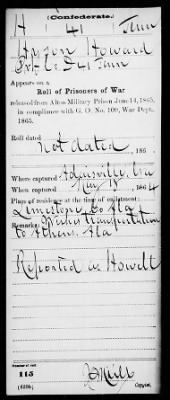 (Confederate.)
H 41 Tenn
Hyson Howard
Pvt Co D 41 Tenn
Appears on a
Roll of Prisoners of War
released from Alton Military Prison June 14, 1865,
in compliance with G. O. No. 109, War Dept.
1865.
Roll dated
Not dated , 186 .
Where captured Adairsville, Ga
When captured May 18 , 1864
Place of residence at time of enlistment:
Limestone Co Ala
Remarks: Wishes transportation
to Athens, Ala
Reported as Howell
Number of roll:
115
Copyist.